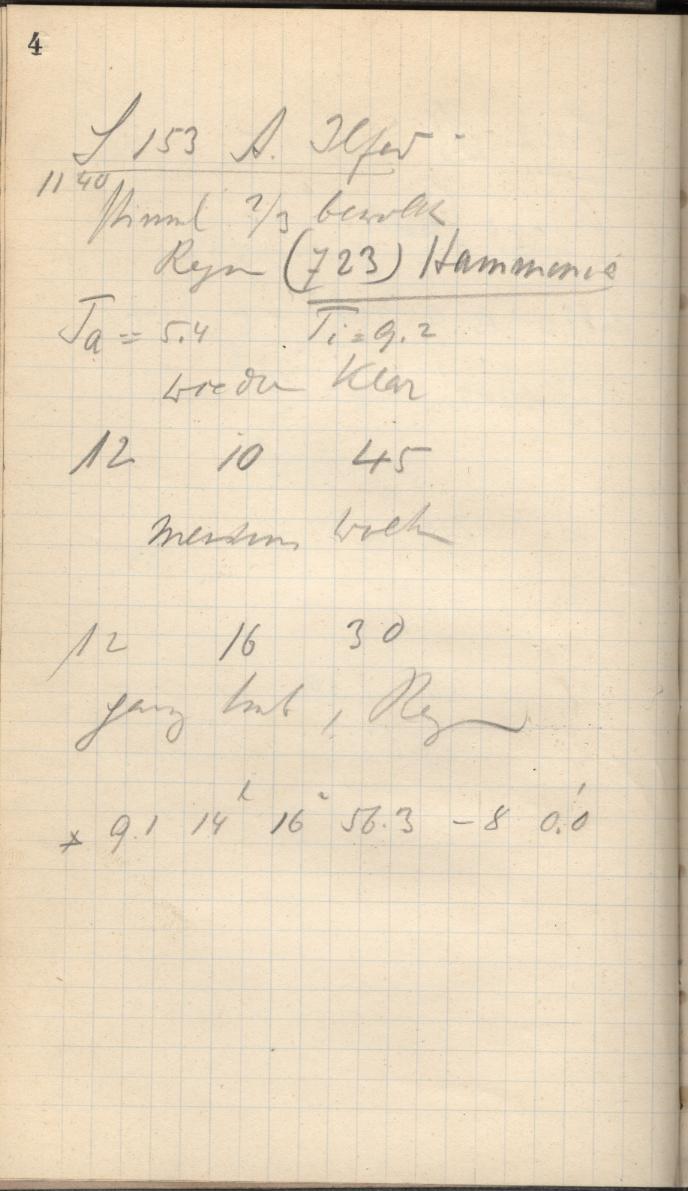 4
S 153 A. Ilford
11 40
Himmel 2/3 bewölk
Regen (723) Hammonia
Ta = 5.4 Ti = 9.2
wieder Klar
12 10 45
Wolken
12 16 30
ganz trüb, Regen
* 9.1 14h 16m 56.3 -8 0.'0